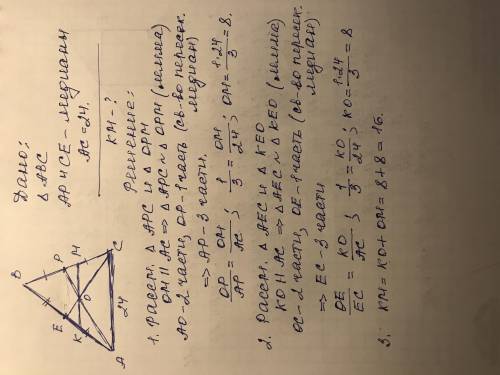 Дано:
△ ABC
AP и CE - медианы
AC = 24.
KM - ?
B
E
P
K
O
M
A
24
C
Решение:
1. Рассм. △ APC и △ OPM
OM || AC => △ APC ~ △ OPM (лемма)
AO - 2 части, OP - 1 часть (св-во пересек. медиан)
=> AP - 3 части.
OP/AP = OM/AC ; 1/3 = OM/24 ; OM = 1·24/3 = 8.
2. Рассм. △ AEC и △ KEO
KO || AC => △ AEC ~ △ KEO (лемма)
OC - 2 части, OE - 1 часть (св-во пересек. медиан)
=> EC - 3 части
OE/EC = KO/AC ; 1/3 = KO/24 ; KO = 1·24/3 = 8
3. KM = KO + OM = 8 + 8 = 16.